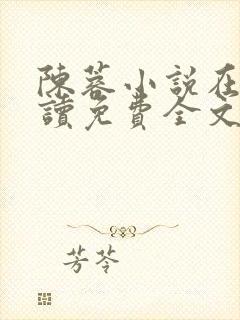 陳蓉小說在
讀免費全文
芳苓